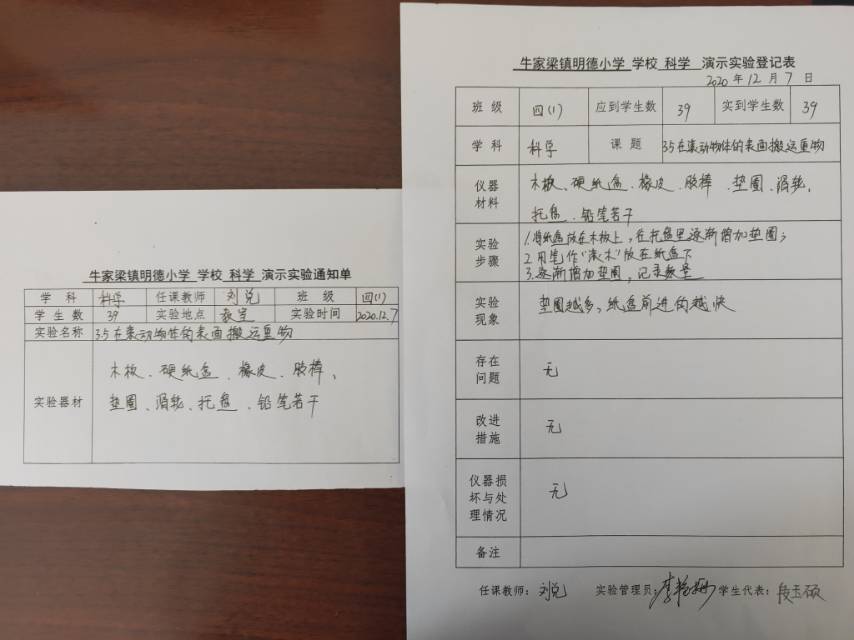 牛家梁镇明德小学 学校 科学 演示实验通知单
学 科 科学 任课教师 刘说 班 级 四(1)
学 生 数 39 实验地点 教室 实验时间 2020.12.7
实验名称 3.5在滚动物体的表面搬运重物
实验器材 木板、硬纸盒、橡皮、胶棒、
垫圈、滑轮、托盘、铅笔若干
牛家梁镇明德小学 学校 科学 演示实验登记表
2020 年 12 月 7 日
班 级 四(1) 应到学生数 39 实到学生数 39
学 科 科学 课 题 3.5在滚动物体的表面搬运重物
仪器材料 木板、硬纸盒、橡皮、胶棒、垫圈、滑轮、
托盘、铅笔若干
实验步骤 1.将纸盒放在木板上,在托盘里逐渐增加垫圈;
2.用笔作“滚木”放在纸盒下
3.逐渐增加垫圈,记录数量
实验现象 垫圈越多,纸盒前进的越快
存在问题 无
改进措施 无
仪器损坏与处理情况 无
备注
任课教师: 刘说 实验管理员: 学生代表: 段玉硕